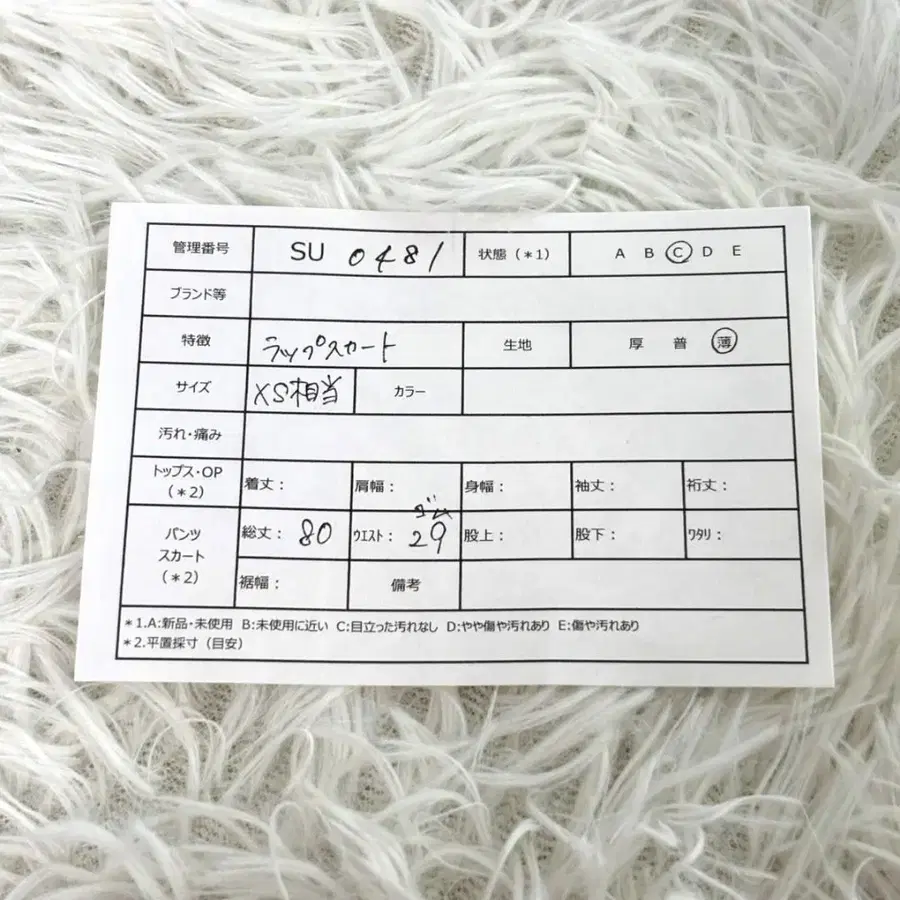 管理番号 SU 0481 状態（＊1） A B C D E
ブランド等
特徴 ラップスカート 生地 厚 普 薄
サイズ XS相当 カラー
汚れ・痛み
トップス・OP（＊2） 着丈： 肩幅： 身幅： 袖丈： 裄丈：
パンツ スカート（＊2） 総丈： 80 ウエスト： ゴム 29 股上： 股下： ワタリ：
裾幅： 備考
＊1.A:新品・未使用 B:未使用に近い C:目立った汚れなし D:やや傷や汚れあり E:傷や汚れあり
＊2.平置採寸（目安）